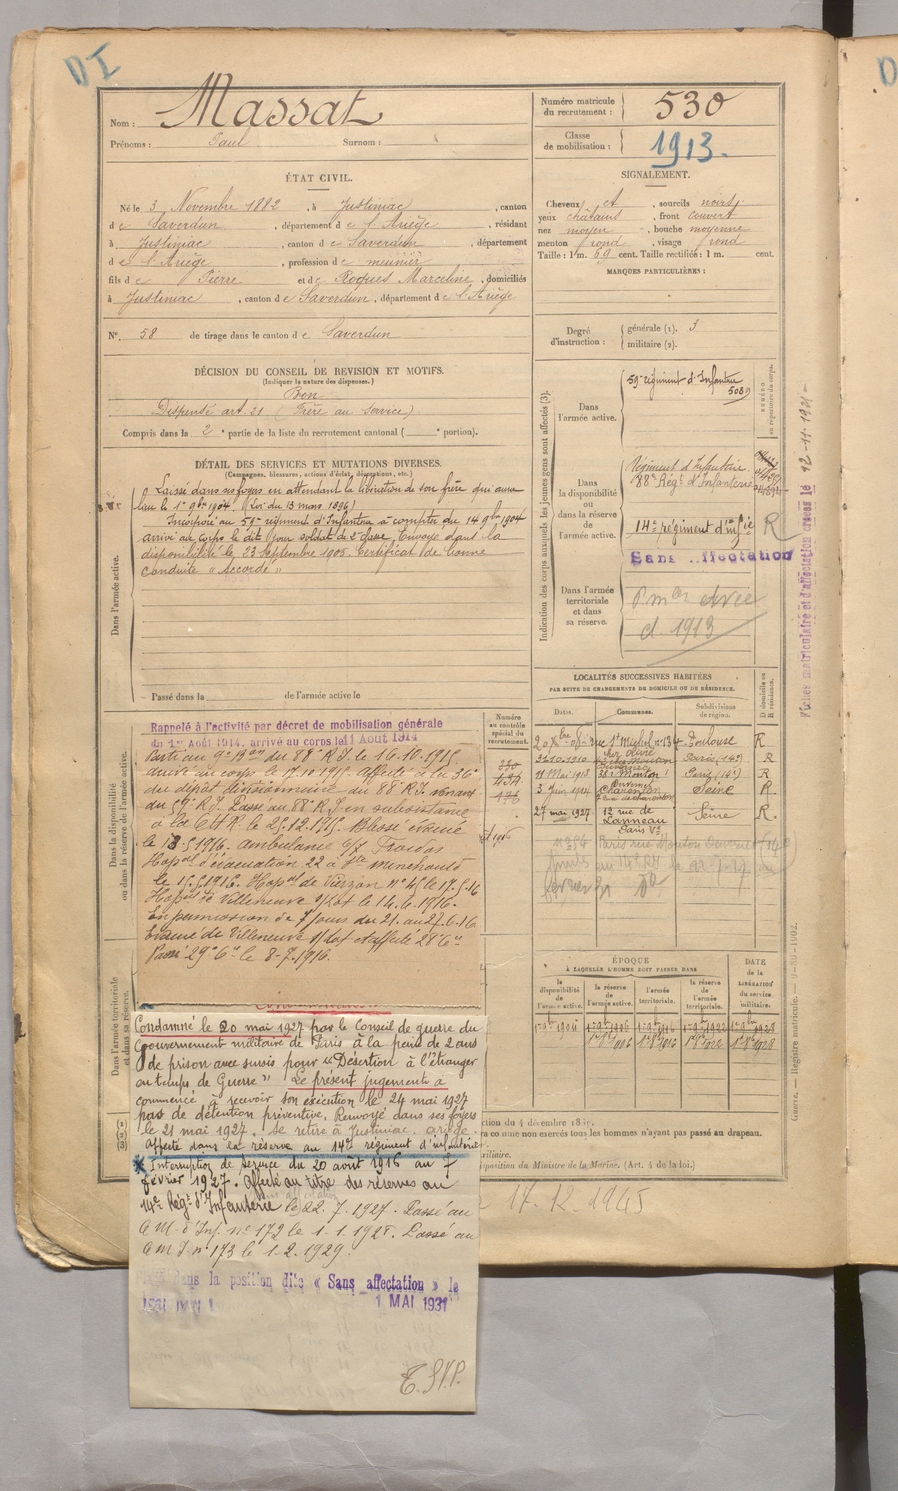 DI
Nom : Massat
Prénoms : Paul Surnom :
ÉTAT CIVIL.
Né le 3 Novembre 1882, à Justiniac, canton
de Saverdun, département de l'Ariège, résidant
à Justiniac, canton de Saverdun, département
de l'Ariège, profession de meunier
fils de Pierre et de Roques Marceline, domiciliés
à Justiniac, canton de Saverdun, département de l'Ariège
N° 58 de tirage dans le canton de Saverdun
DÉCISION DU CONSEIL DE REVISION ET MOTIFS.
(Indiquer la nature des dispenses.)
Bon
Dispensé art. 21 (Frère au service)
Compris dans la 2e partie de la liste du recrutement cantonal ( e portion).
DÉTAIL DES SERVICES ET MUTATIONS DIVERSES.
(Campagnes, blessures, actions d'éclat, décorations, etc.)
Dans l'armée active.
Laissé dans ses foyers en attendant la libération de son frère qui aura
lieu le 1er 9bre 1904. (Loi du 13 mars 1896)
Incorporé au 59e régiment d'Infanterie à compter du 14 9bre 1904
arrivé au corps le dit jour soldat de 2e classe. Envoyé dans la
disponibilité le 23 Septembre 1905. Certificat de bonne
conduite "Accordé"
Passé dans la de l'armée active le
Dans la disponibilité ou dans la réserve de l'armée active.
Rappelé à l'activité par décret de mobilisation générale
du 1er Août 1914, arrivé au corps le 11 Août 1914
Parti au 9e Bon du 88e R.I. le 16.10.1915
arrivé au corps le 17.10.1915. Affecté à la 36e
du dépôt divisionnaire du 88e R.I. venant
du 59e R.I. Passé au 88e R.I. en subsistance
à la CHR le 25.12.1915. Blessé évacué
le 13.5.1916. ambulance 0/7 Froidos
Hopal d'évacuation 22 à Ste Menehould
le 15.5.1916. Hopal de Vierzon n° 45 le 17.5.16
Hopal de Villeneuve s/Lot le 14.6.1916.
En permission de 7 jours du 21. au 27.6.16
Evacué de Villeneuve s/Lot Affecté 28e Cie
Passé 29e Cie le 8-7.1916.
Numéro au contrôle spécial du recrutement.
Dans l'armée territoriale et dans sa réserve.
Condamné le 20 mai 1927 par le Conseil de guerre du
Gouvernement militaire de Paris à la peine de 2 ans
de prison avec sursis pour "Désertion à l'étranger
en temps de Guerre" Le présent jugement a
commencé à recevoir son exécution le 24 mai 1927
pas de détention préventive. Renvoyé dans ses foyers
le 21 mai 1927. Se retire à Justiniac. ariège.
affecté dans la réserve au 14e régiment d'infanterie
* Interruption de service du 20 août 1916 au 7
février 1927. Affecté au titre des réserves au
14e Régt d'Infanterie le 22.7.1927. Passé au
C.M. d'Inf. n° 172 le 1.1.1928. Passé au
C.M.I n° 173 le 1.2.1929.
dans la position dite « Sans affectation » le
1 MAI 1931
T.S.V.P.
Numéro matricule du recrutement : 530
Classe de mobilisation : 1913.
SIGNALEMENT.
Cheveux et, sourcils noirs,
yeux châtains, front couvert
nez moyen, bouche moyenne
menton rond, visage rond
Taille : 1 m. 69 cent. Taille rectifiée : 1 m. cent.
MARQUES PARTICULIÈRES :
Degré d'instruction : générale (1). 3
militaire (2).
Indication des corps auxquels les jeunes gens sont affectés (3).
NUMÉRO au répertoire du corps.
Dans l'armée active.
59e régiment d'Infanterie
Dans la disponibilité ou dans la réserve de l'armée active.
Régiment d'Infanterie
88e Régt d'Infanterie
14e régiment d'infie R
Sans affectation
Dans l'armée territoriale et dans sa réserve.
cl. 1913
Fiches matriculaire et d'affectation créées le 12-11-1921
LOCALITÉS SUCCESSIVES HABITÉES
PAR SUITE DE CHANGEMENTS DE DOMICILE OU DE RÉSIDENCE.
Dates. Communes. Subdivisions de région. D domicile ou R résidence.
rue St Michel n° 134 Toulouse R
31.10.1910 Paris (14e) R
11 Mai 1913 Paris (14e) R
3 Juin 1914 Charenton Seine R.
27 mai 1927 12 rue de Lanneau Paris Ve Seine R.
ÉPOQUE
À LAQUELLE L'HOMME DOIT PASSER DANS
DATE de la LIBÉRATION du service militaire.
la disponibilité de l'armée active. la réserve de l'armée active. l'armée territoriale. la réserve de l'armée territoriale.
Guerre. — Registre matricule. 1902.
ction du 4 décembre 18
comme non exercés tous les hommes n'ayant pas passé au drapeau.
xiliaire.
disposition du Ministre de la Marine. (Art. 4 de la loi.)
17.12.1945